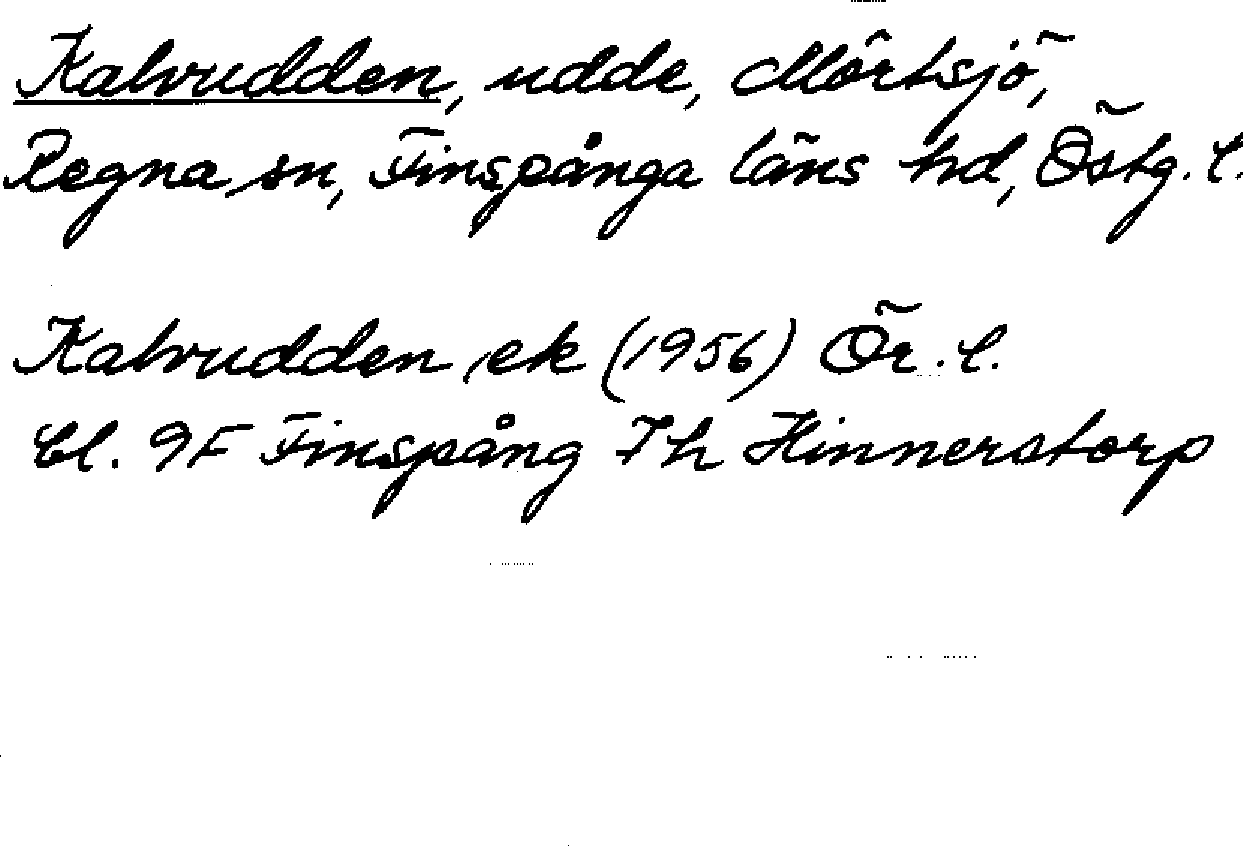 Kalvudden, udde, Mörtsjö,
Regna sn, Finspånga läns hd, Östg. l.
Kalvudden ek (1956) Ör. l.
bl. 9F Finspång 7h Hinnerstorp